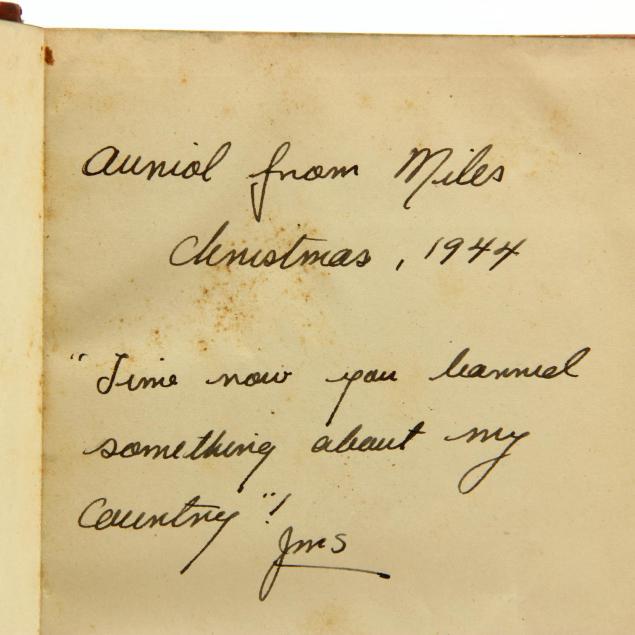 Auriol from Miles
Christmas, 1944
"Time now you learned
something about my
Country"!
JMS